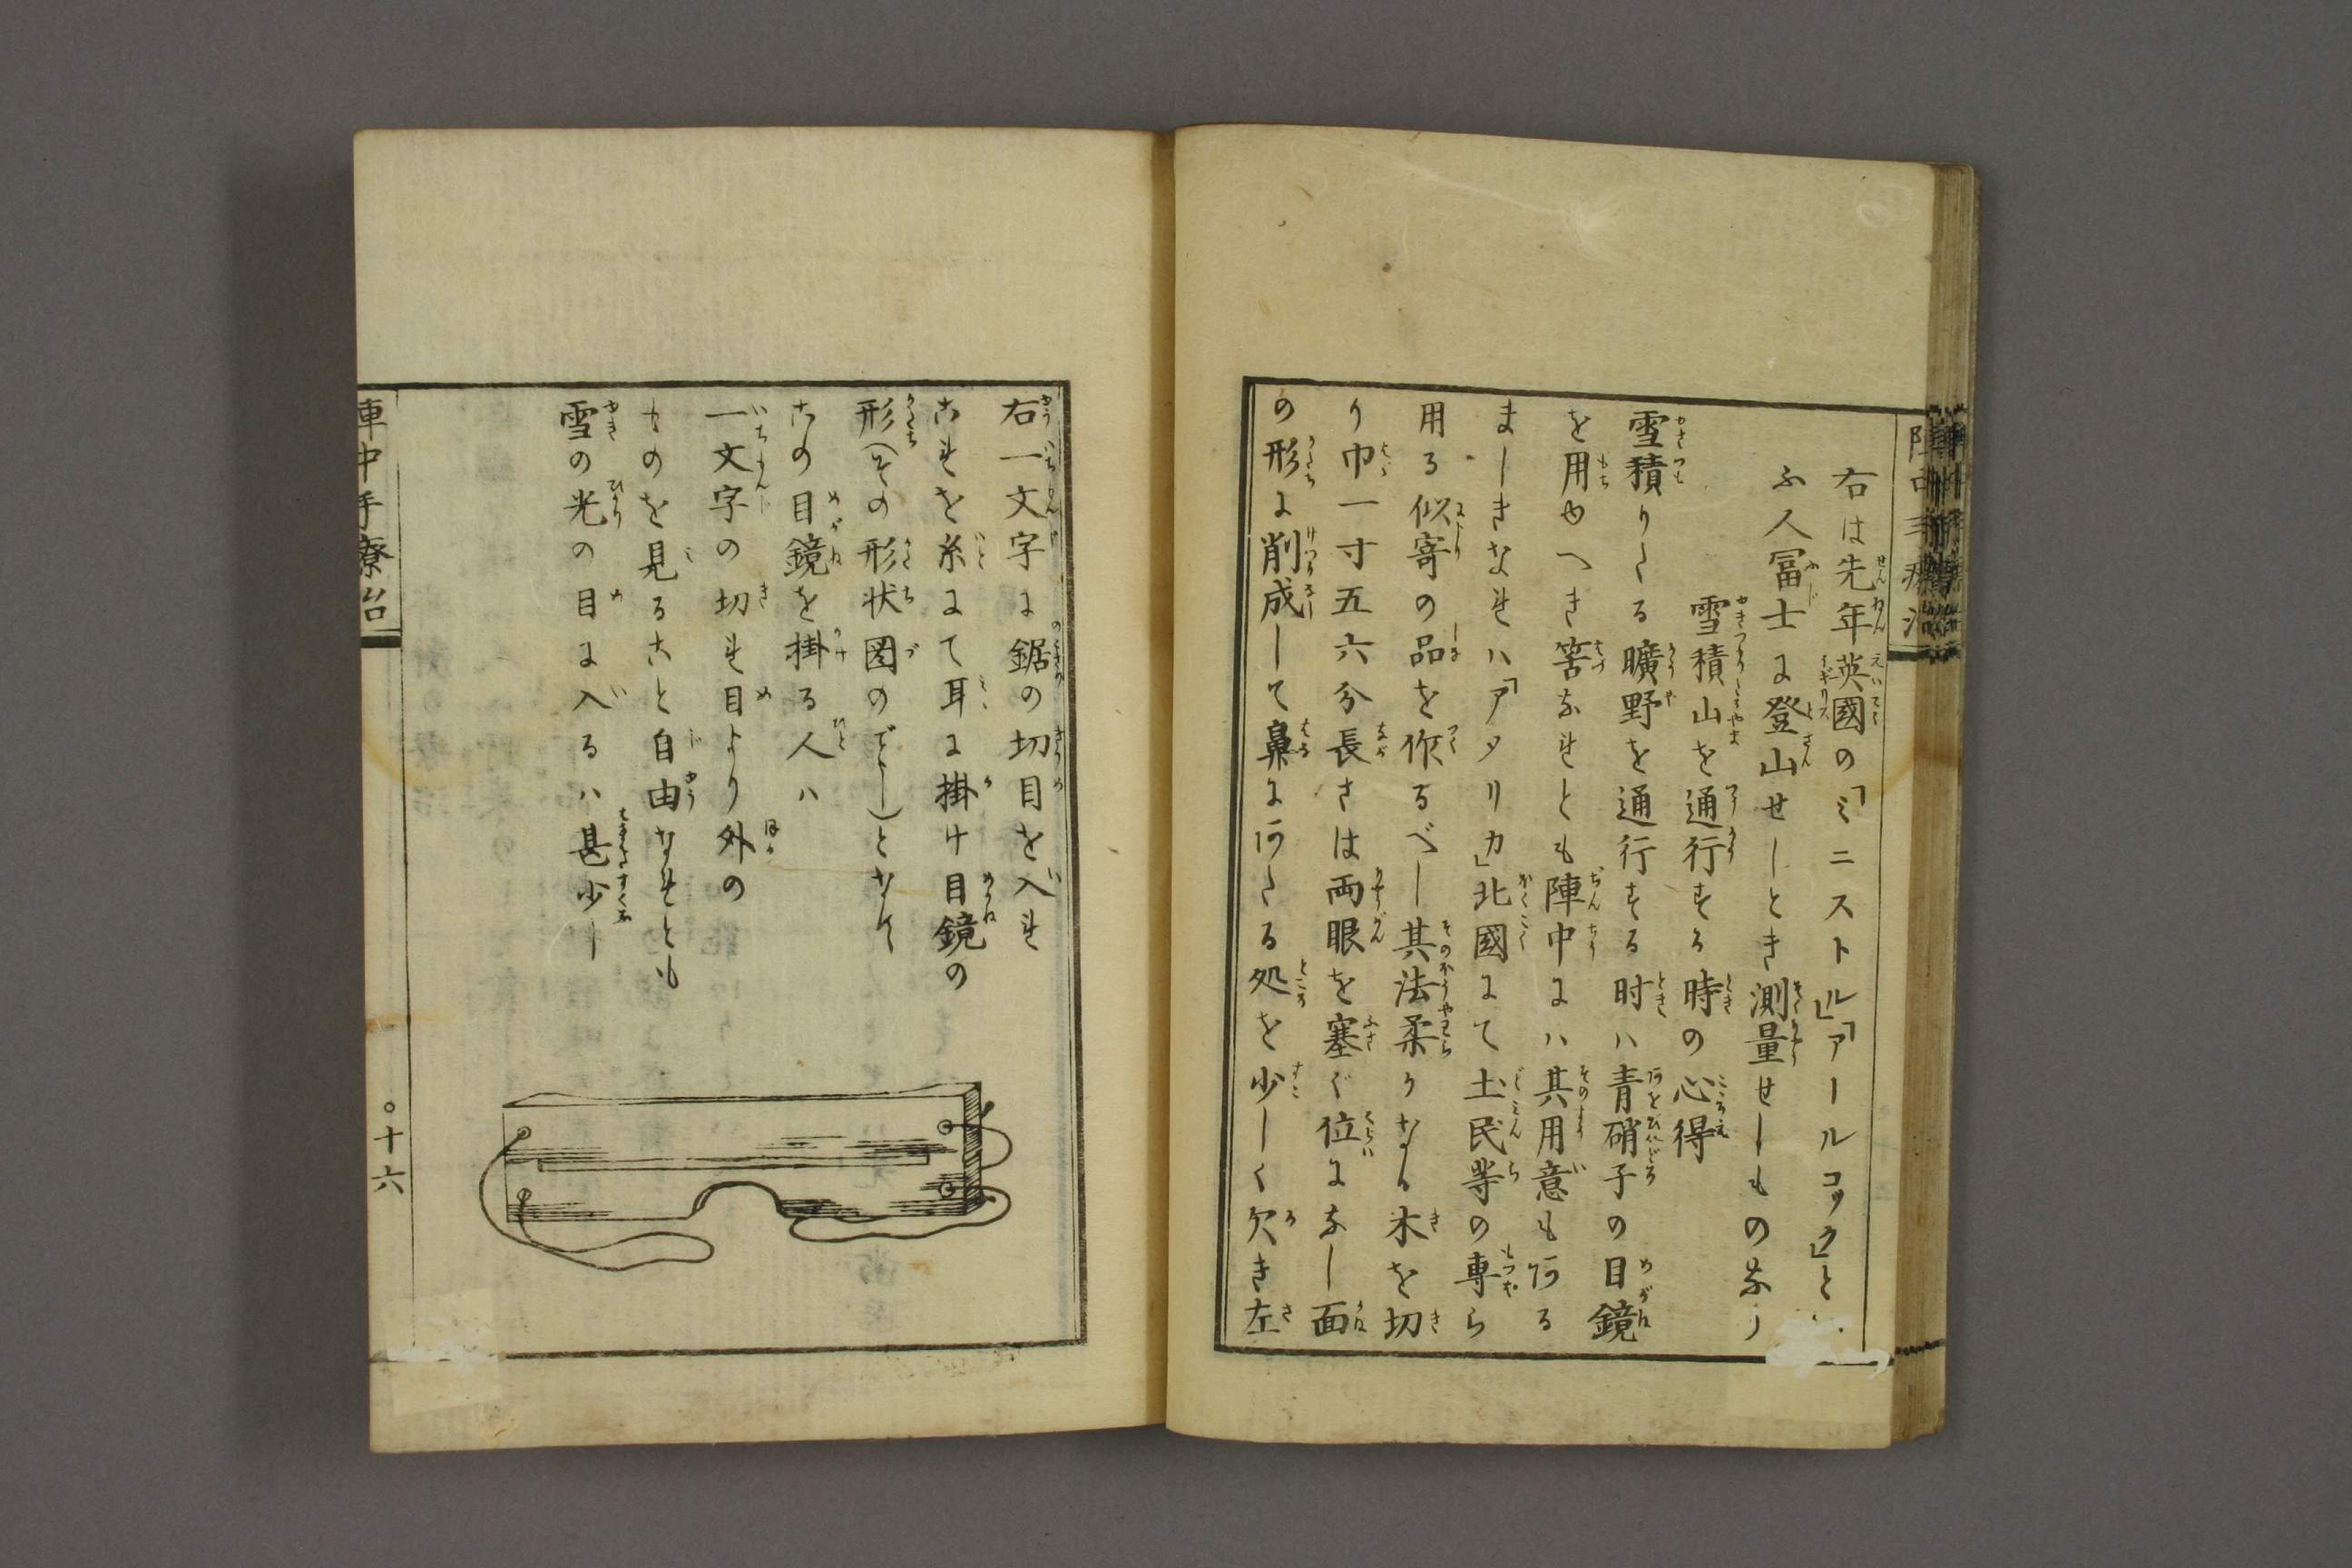 右は先年英國の「ミニストル」「アールコック」と
ふ人冨士に登山せしとき測量せしものなり
雪積山を通行する時の心得
雪積りたる曠野を通行する时ハ青硝子の目鏡
を用ゆへき筈なれとも陣中にハ其用意も何る
ましきなれハ「アメリカ」北國にて土民等の専ら
用る似寄の品を作るべし其法柔かなる木を切
り巾一寸五六分長さは両眼を塞ぐ位になし面
の形に削成して鼻にあたる処を少しく欠き左
右一文字に鋸の切目を入れ
これを糸にて耳に掛け目鏡の
形(その形状図のごとし)となす
この目鏡を掛る人ハ
一文字の切れ目より外の
ものを見ること自由なれとも
雪の光の目に入るハ甚少し
陣中手療治
十六